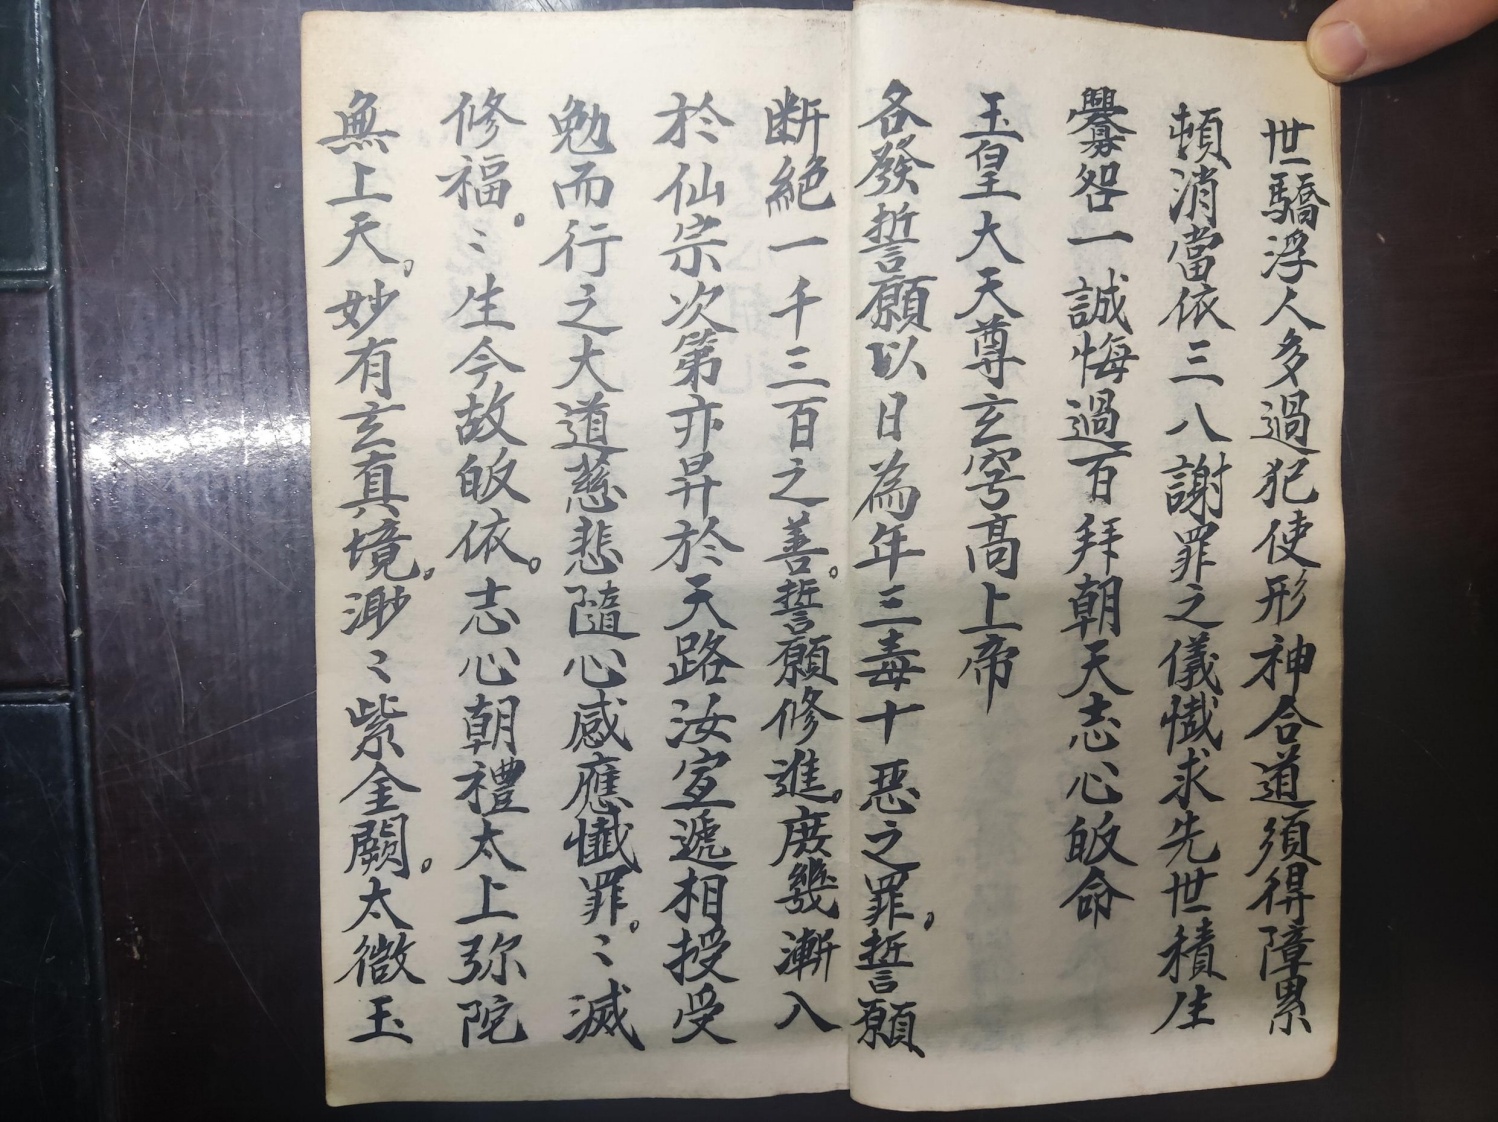 世驕浮人多過犯使形神合道須得障累
頓消當依三八謝罪之儀懺求先世積生
釁咎一誠悔過百拜朝天志心皈命
玉皇大天尊玄穹高上帝
各發誓願以日為年三毒十惡之罪。誓願
断絕一千三百之善。誓願修進。庻幾漸入
於仙宗次第亦昇於天路汝宜遞相授受
勉而行之大道慈悲隨心感應懺罪。〻滅
修福。〻生今故皈依。志心朝禮太上弥陀
無上天。妙有玄真境。渺〻紫金闕。太微玉